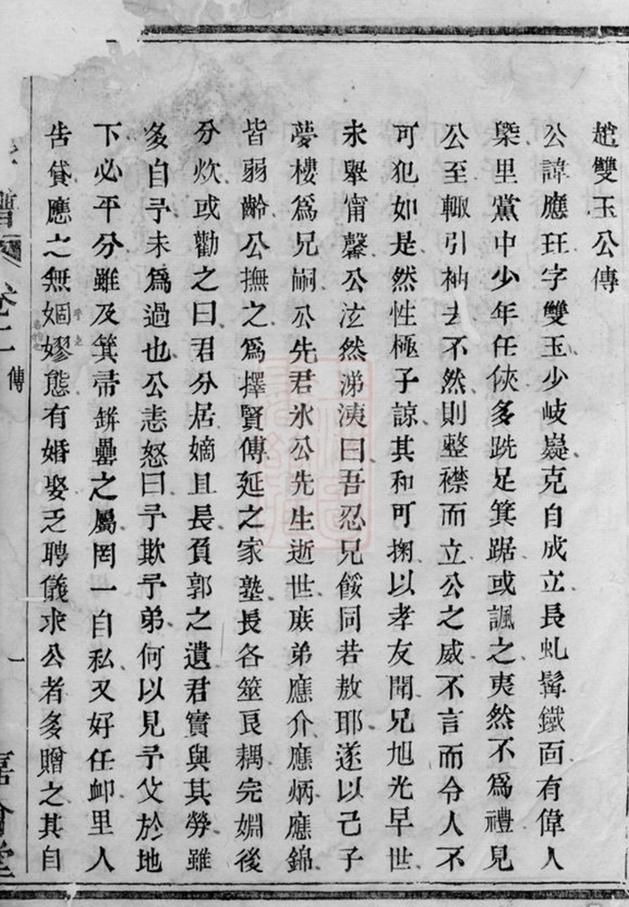 趙雙玉公傳
公諱應玨字雙玉少岐嶷克自成立長虬髯鐵面有偉人
槩里黨中少年任俠多跣足箕踞或諷之夷然不為禮見
公至輙引袖去不然則整襟而立公之威不言而令人不
可犯如是然性極子諒其和可掬以孝友聞兄旭光早世
未舉甯馨公泫然涕洟曰吾忍兄餒同若敖耶遂以己子
夢樓為兄嗣公先君氷公先生逝世庻弟應介應炳應錦
皆弱齡公撫之為擇賢傅延之家塾長各筮良耦完婣後
分炊或勸之曰君分居嫡且長負郭之遺君實與其勞雖
多自予未為過也公恚怒曰予欺予弟何以見予父於地
下必平分雖及箕帚缾罍之屬罔一自私又好任䘏里人
告貸應之無婟嫪態有婚娶乏聘儀求公者多贈之其自
卷二 傳
一